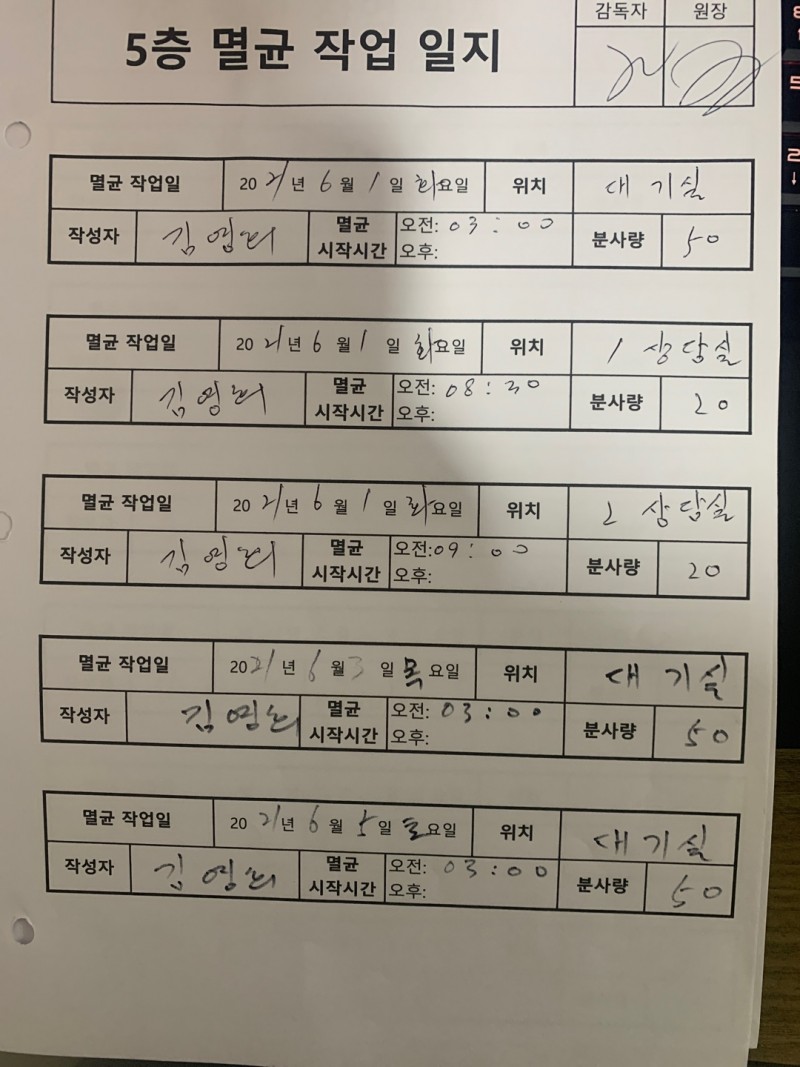 감독자 원장
5층 멸균 작업 일지
멸균 작업일 2021년 6월 1일 화요일 위치 대기실
작성자 김영희 멸균 시작시간 오전: 03:00 오후: 분사량 50
멸균 작업일 2021년 6월 1일 화요일 위치 1 상담실
작성자 김영희 멸균 시작시간 오전: 08:30 오후: 분사량 20
멸균 작업일 2021년 6월 1일 화요일 위치 2 상담실
작성자 김영희 멸균 시작시간 오전: 09:00 오후: 분사량 20
멸균 작업일 2021년 6월 3일 목요일 위치 대기실
작성자 김영희 멸균 시작시간 오전: 03:00 오후: 분사량 50
멸균 작업일 2021년 6월 5일 토요일 위치 대기실
작성자 김영희 멸균 시작시간 오전: 03:00 오후: 분사량 50